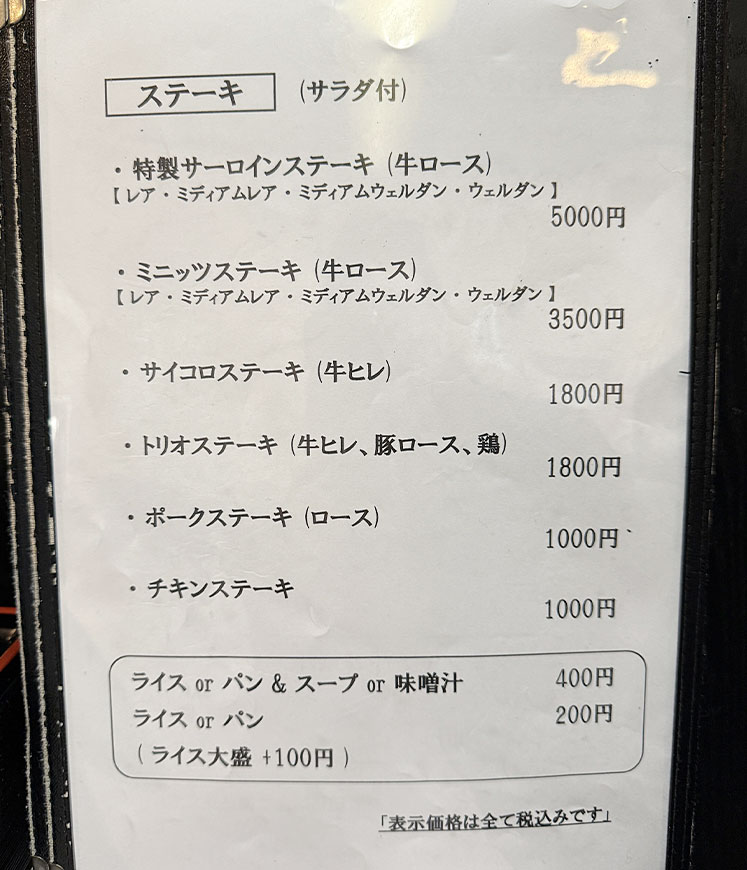 ステーキ (サラダ付)
・特製サーロインステーキ (牛ロース)
【レア・ミディアムレア・ミディアムウェルダン・ウェルダン】
5000円
・ミニッツステーキ (牛ロース)
【レア・ミディアムレア・ミディアムウェルダン・ウェルダン】
3500円
・サイコロステーキ (牛ヒレ)
1800円
・トリオステーキ (牛ヒレ、豚ロース、鶏)
1800円
・ポークステーキ (ロース)
1000円
・チキンステーキ
1000円
ライス or パン & スープ or 味噌汁 400円
ライス or パン 200円
(ライス大盛 +100円)
「表示価格は全て税込みです」